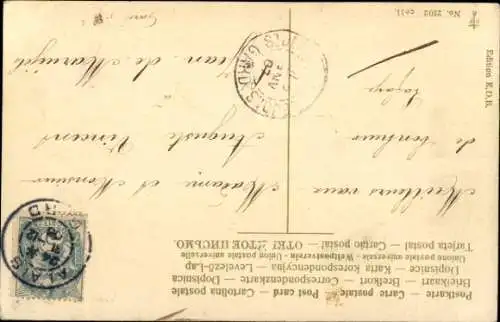 Carte postale — Post card — Cartolina postale
Briefkaart — Brefkort — Correspondenzkarte — Dopisnica
Dopisnice — Karta korespondencyjna — Levelező-Lap
Union postale universelle - Weltpostverein - Unione postale universale
Tarjeta postal — Cartão postal — ОТКРЫТОЕ ПИСЬМО.
Meilleurs vœux
de bonheur
Madame et Monsieur
Auguste Vincent
Mas de
ALAIS
GARD
GARD
Edition E.D.B.
No. 2102 coll.